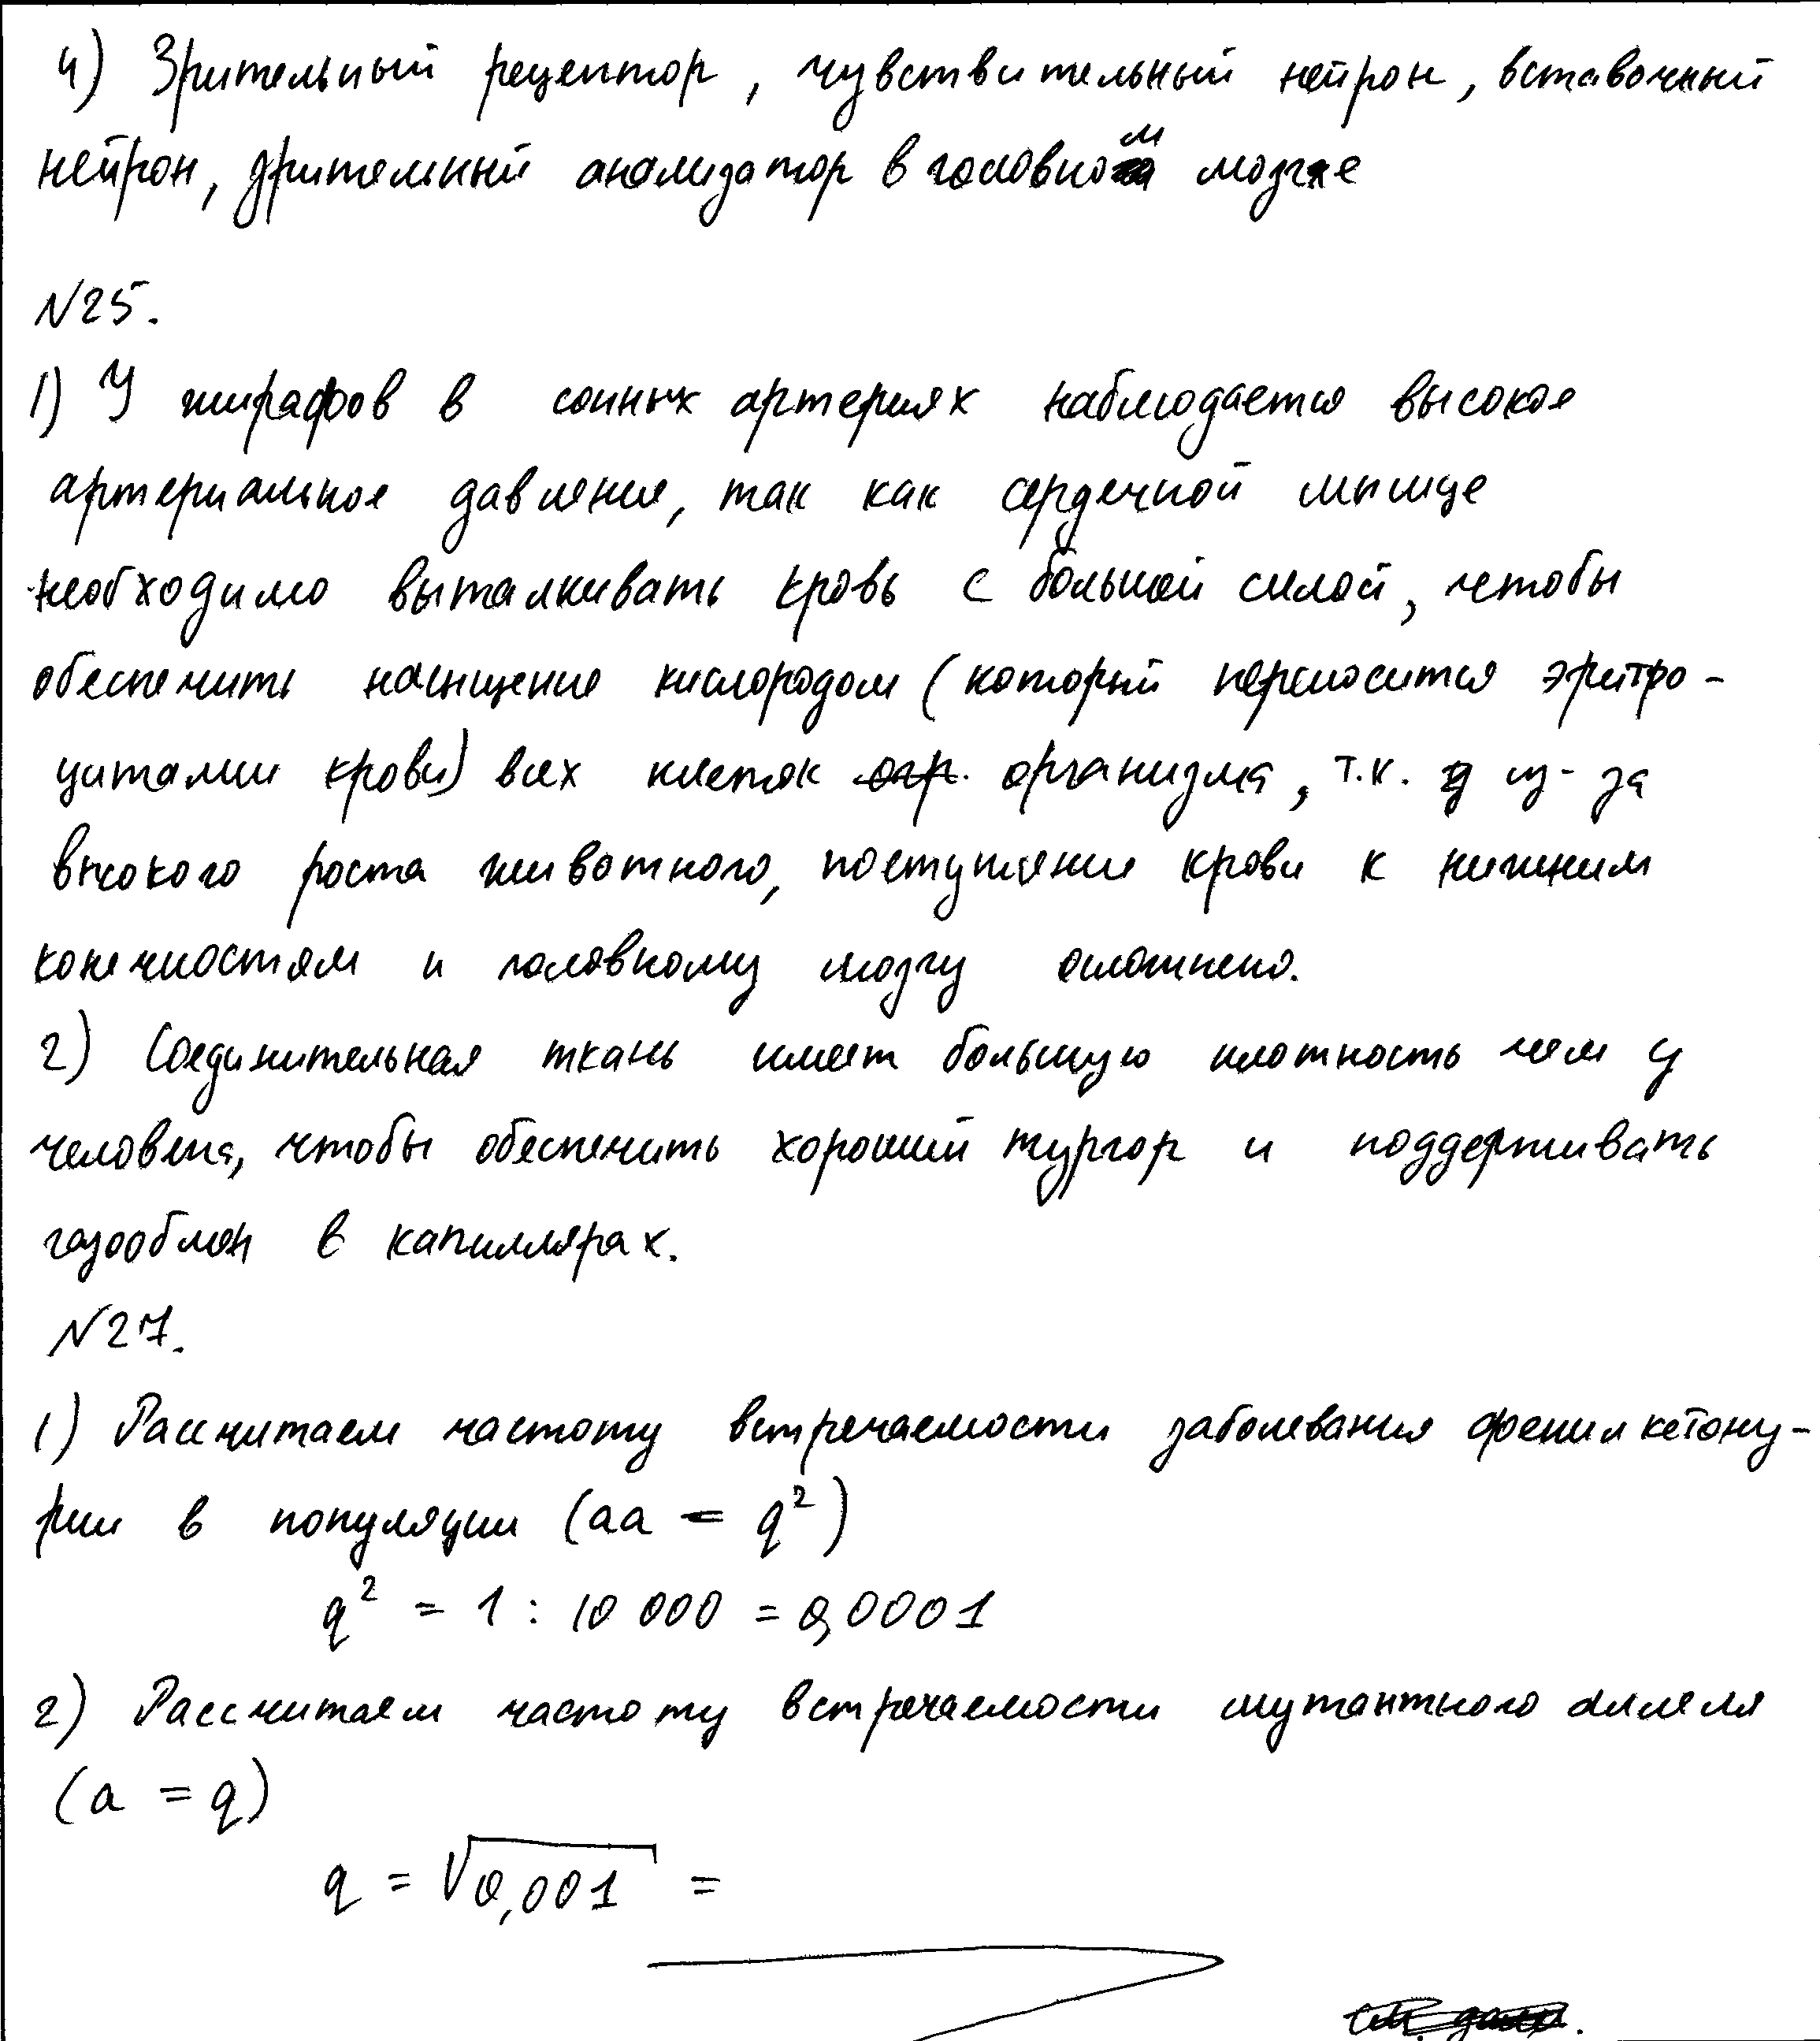 4) Зрительный рецептор, чувствительный нейрон, вставочный
нейрон, зрительный анализатор в головном мозге
N25.
1) У жирафов в сонных артериях наблюдается высокое
артериальное давление, так как сердечной мышце
необходимо выталкивать кровь с большой силой, чтобы
обеспечить насыщение кислородом (который переносится эритро-
цитами крови) всех клеток орг. организма, т.к. из-за
высокого роста животного, поступление крови к нижним
конечностям и головному мозгу осложнено.
2) Соединительная ткань имеет большую плотность чем у
человека, чтобы обеспечить хороший тургор и поддерживать
газообмен в капиллярах.
N27.
1) Рассчитаем частоту встречаемости заболевания фенилкетону-
рии в популяции (aa = q²)
q² = 1 : 10 000 = 0,0001
2) Рассчитаем частоту встречаемости мутантного аллеля
(a = q)
q = √0,001 =